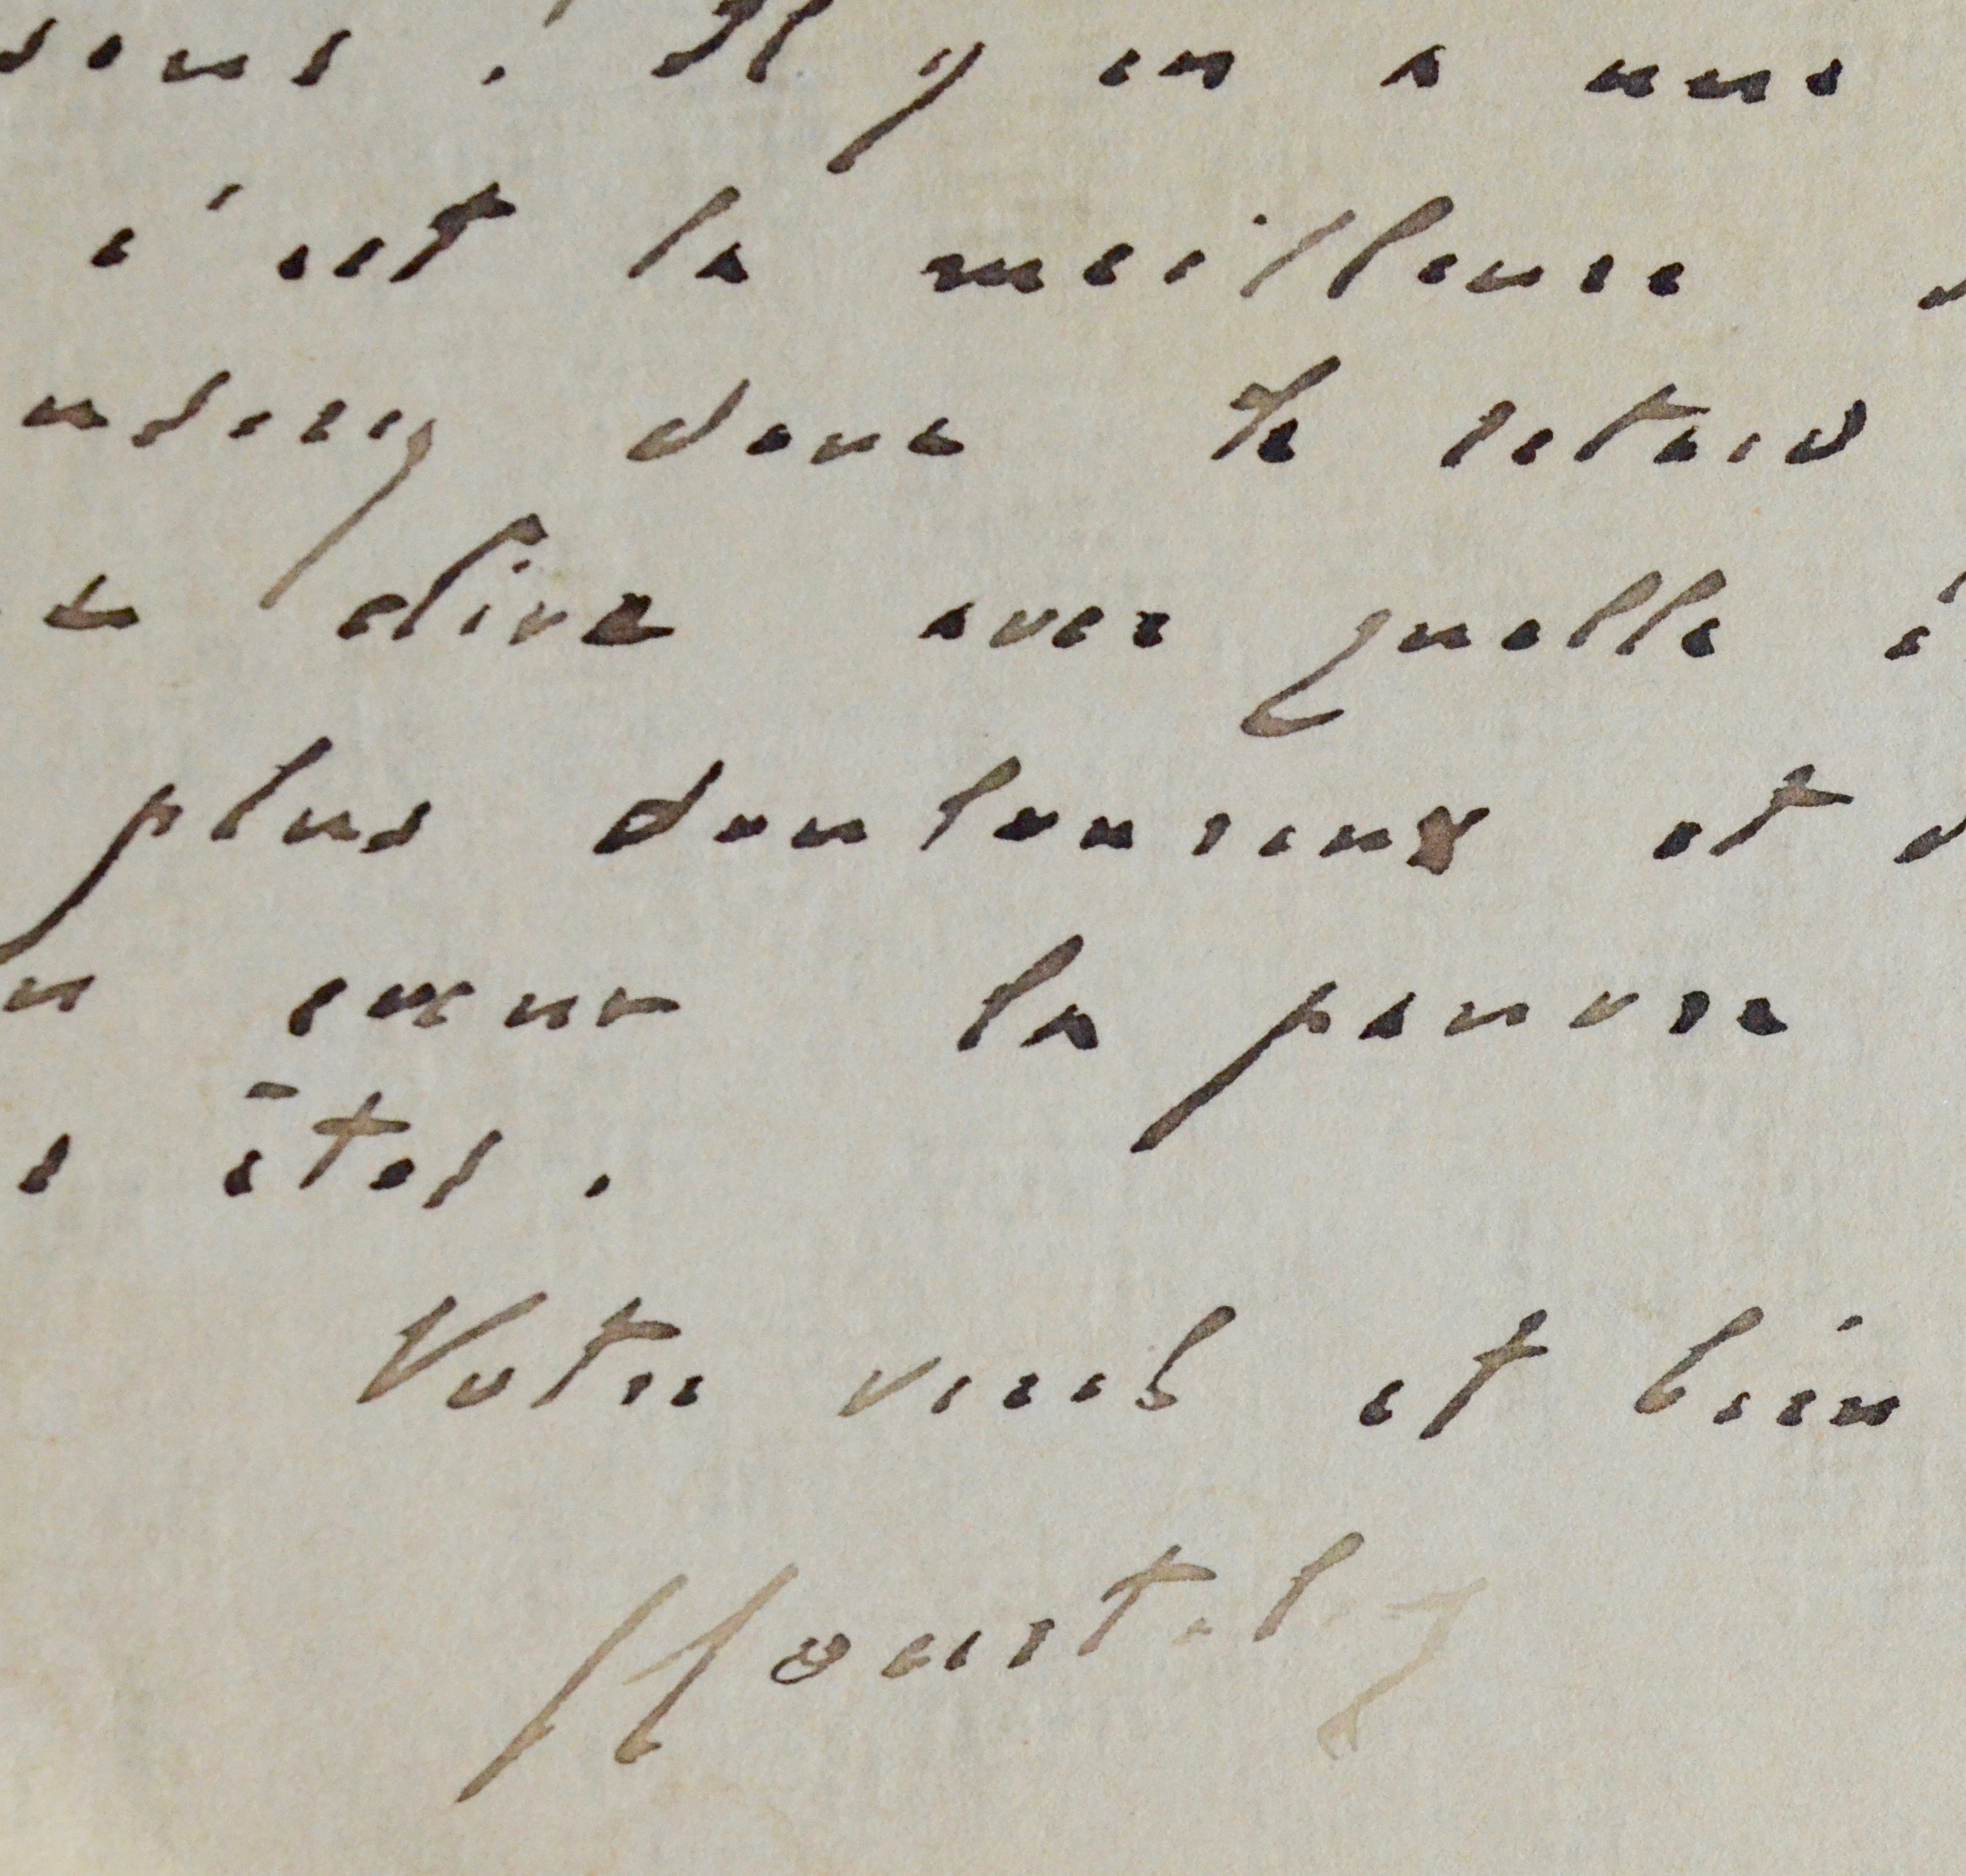 vous. Il y en a une
c'est la meilleure
donc le retard
dire avec quelle
plus douloureux et
cœur la pauvre
êtes.
Votre vieil et bien